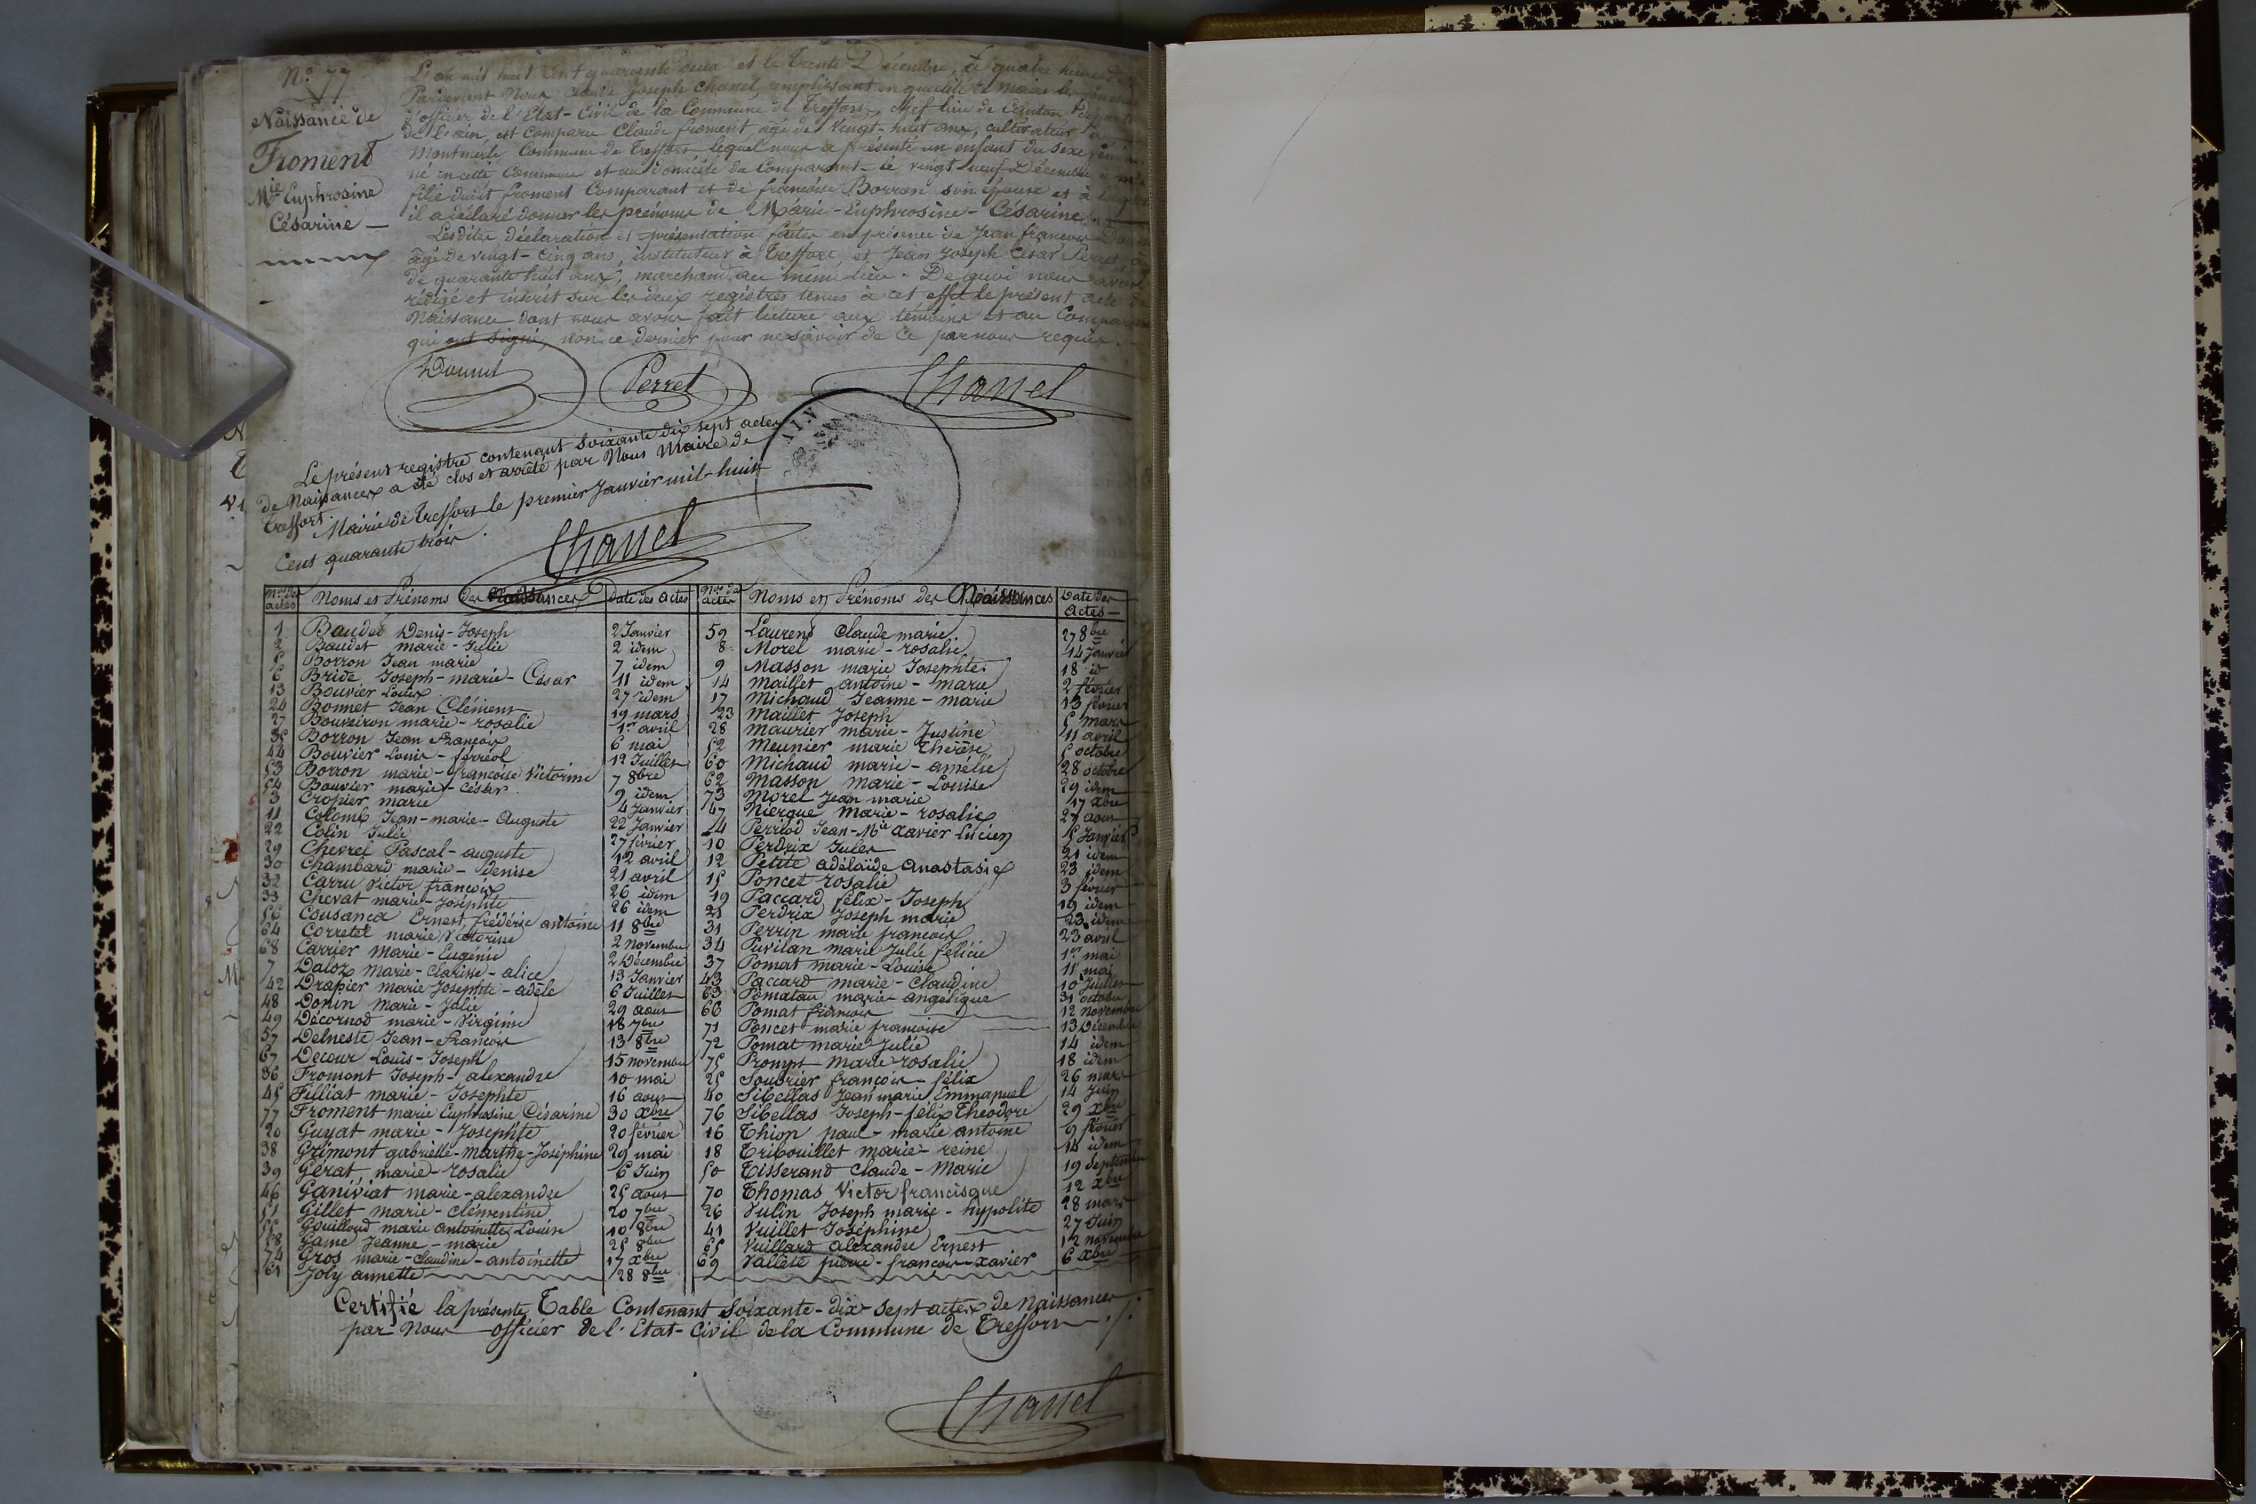 N.° 77
Naissance de
Froment
M.ie Euphrosine
Césarine —
L'an mil huit cent quarante deux et le trente Décembre, à quatre heures
Pardevant Nous Claude Joseph Chanel, remplissant en qualité de Maire les fonctions
d'officier de l'Etat-Civil de la Commune de Treffort, chef lieu de Canton
de l'ain, est comparu Claude froment âgé de vingt-huit ans, cultivateur à
Montmerle Commune de Treffort lequel nous a présenté un enfant du sexe
né en cette Commune et au domicile du Comparant le vingt neuf Décembre
fille dudit froment Comparant et de françoise Borron son épouse et à
il a déclaré donner les prénoms de Marie-Euphrosine-Césarine
Lesdites déclaration et présentation faites en présence de Jean françois
âgé de vingt-cinq ans, instituteur à Treffort, et Jean Joseph César Perret
de quarante huit ans, marchand au même lieu. De quoi nous avons
rédigé et inscrit sur les deux registres tenus à cet effet le présent acte de
Naissance dont nous avons fait lecture aux témoins et au Comparant
qui ont signé, non ce dernier pour ne savoir de ce par nous requis.
Perret Chanel
AIN
Le présent registre contenant soixante dix sept actes
de Naissances a été clos et arrêté par Nous Maire de
Treffort.
Mairie de Treffort le premier Janvier mil-huit
Cent quarante trois.
Chanel
N.os des actes Noms et Prénoms des Naissances Date des Actes
1 Baudet Denis-Joseph 2 Janvier
2 Baudet marie-Julie 2 idem
5 Borron Jean marie 7 idem
6 Bride Joseph-marie-César 11 idem
13 Bouvier Louis 27 idem
24 Bonnet Jean Clément 19 mars
27 Bouveiron marie-rosalie 1.er avril
35 Borron Jean François 6 mai
44 Bouvier Louis-ferréol 12 Juillet
53 Borron marie-françoise Victorine 7 8bre
54 Bouvier marie-César 9 idem
3 Cropier marie 4 Janvier
11 Colomb Jean-marie-Auguste 22 Janvier
22 Colin Julie 27 février
29 Chevrel Pascal-auguste 12 avril
30 Chambard marie-Denise 21 avril
32 Carru Victor françois 26 idem
33 Chevat marie-Josephte 26 idem
56 Cousança Ernest frédéric antoine 11 8bre
64 Corretel marie Victorine 2 novembre
68 Carrier Marie-Eugénie 2 Décembre
7 Daloz marie-Clarisse-alice 13 Janvier
42 Drapier marie Josephte-adèle 6 Juillet
48 Donin Marie-Julie 29 aout
49 Décornod marie-Virginie 18 7bre
57 Delneste Jean-François 13 8bre
67 Decour Louis-Joseph 15 novembre
36 Fromont Joseph-alexandre 10 mai
45 Filliat marie-Josephte 16 aout
77 Froment marie Euphrosine Césarine 30 xbre
20 Guyat marie-Josephte 20 février
38 Grimont gabrielle-marthe-Joséphine 29 mai
39 Gérat marie-rosalie 6 Juin
46 Ganiviat marie-alexandre 25 aout
51 Gillet marie-Clémentine 20 7bre
55 Gouilloud marie antoinette Louise 10 8bre
58 Game Jeanne-marie 25 8bre
74 Gros marie-claudine-antoinette 17 xbre
61 Joly annette 28 8bre
N.os des actes Noms et Prénoms des Naissances Date des Actes —
59 Laurent Claude marie 27 8bre
8 Morel marie-rosalie 14 Janvier
9 Masson marie Josephte 18 id
14 Maillet antoine-marie 2 février
17 Michaud Jeanne-marie 13 février
23 Maillet Joseph 5 mars
28 Maurier marie-Justine 11 avril
52 Meunier marie Thérèse 5 octobre
60 Michaud marie-amélie 28 octobre
62 Masson marie-Louise 29 idem
73 Morel Jean marie 17 xbre
47 Niergue Marie-rosalie 27 aout
4 Perriod Jean-M.ie Xavier Lucien 5 Janvier
10 Perdrix Jules 21 idem
12 Petite adélaïde Anastasie 23 idem
15 Poncet rosalie 3 février
19 Paccard félix-Joseph 19 idem
21 Perdrix Joseph marie 23 idem
31 Perrin marie françois 23 avril
34 Puvilan marie Julie félicie 1.er mai
37 Pomat marie-Louise 11 mai
43 Paccard marie-Claudine 10 Juillet
63 Pomatau marie angelique 31 octobre
66 Pomat françois 12 novembre
71 Poncet marie françoise 13 Décembre
72 Pomat marie Julie 14 idem
75 Prompt Marie rosalie 18 idem
25 Soudrier françois-félix 26 mars
40 Sibellas Jean marie Emmanuel 14 Juin
76 Sibellas Joseph-félix Théodore 29 xbre
16 Thion paul-marie antoine 9 février
18 Tribouillet marie-reine 14 idem
50 Tisserand Claude-Marie 19 septembre
70 Thomas Victor francisque 12 xbre
26 Vulin Joseph marie-hypolite 28 mars
41 Vuillet Joséphine 27 Juin
65 Vuillard alexandre Ernest 12 novembre
69 Vallete pierre-françois-xavier 6 xbre
Certifié la présente Table Contenant Soixante-dix-sept actes de Naissances
par Nous officier de l'Etat-Civil de la Commune de Treffort ./.
Chanel